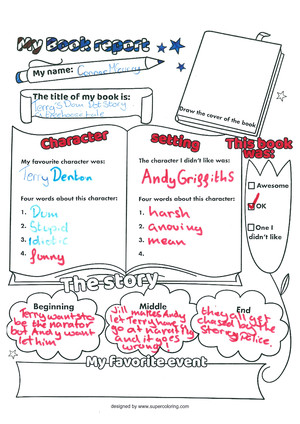 My Book report
My name:
The title of my book is:
Terry's Dum Dot Story
a treehouse tale
Draw the cover of the book
Character
setting
This book was:
My favourite character was:
Terry Denton
Four words about this character:
1. Dum
2. Stupid
3. Idiotic
4. funny
The character I didn't like was:
Andy Griffiths
Four words about this character:
1. harsh
2. anoying
3. mean
4.
Awesome
OK
One I
didn't like
The story
Beginning
Terry wants to
be the narrator
but Andy wont
let him
Middle
Jill makes Andy
let Terry have a
go at narrating
and it goes
wrong!
End
they all get
chased by the
Storey Police.
My favorite event
designed by www.supercoloring.com